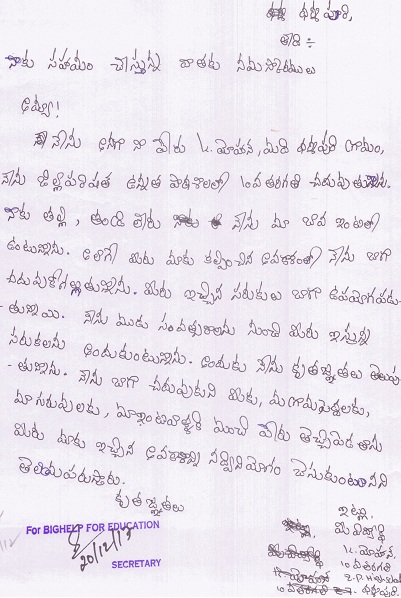 ధర్మపురి,
తేది ÷
నాకు సహాయం చేస్తున్న దాతకు నమస్కారములు
అయ్యా!
నేను అనగా నా పేరు k. మోహన్, మది ధర్మపురి గ్రామం,
నేను జిల్లాపరిషత్ ఉన్నత పాఠశాలలో 10వ తరగతి చదువుతున్నాను.
నాకు తల్లి, తండ్రి లేరు నేను మా బావ ఇంటిలో
ఉంటున్నాను. అలాగే మీరు మాకు కల్పించిన అవకాశంతో నేను బాగా
చదువుకోగల్గుతున్నాను. మీరు ఇచ్చిన సరుకులు బాగా ఉపయోగపడు-
-తున్నాయి. నేను మూడు సంవత్సరాలను నుంచి మీరు ఇస్తున్న
సరుకులను అందుకుంటున్నాను. అందుకు నేను కృతజ్ఞతలు తెలుపు
-తున్నాను. నేను బాగా చదువుకుని మీకు, మా గ్రామపెద్దలకు,
మా గురువులకు, మా ఇంటివాళ్ళకి మంచి పేరు తెచ్చిపెడతాను
మీరు మాకు ఇచ్చిన అవకాశాన్ని సద్వినియోగం చేసుకుంటానని
తెలియపరుస్తాను.
కృతజ్ఞతలు
ఇట్లు,
మీ విద్యార్థి
k. మోహన్,
10వ తరగతి
Z.P. High school
ధర్మపురి.
For BIGHELP FOR EDUCATION
20/12/13
SECRETARY